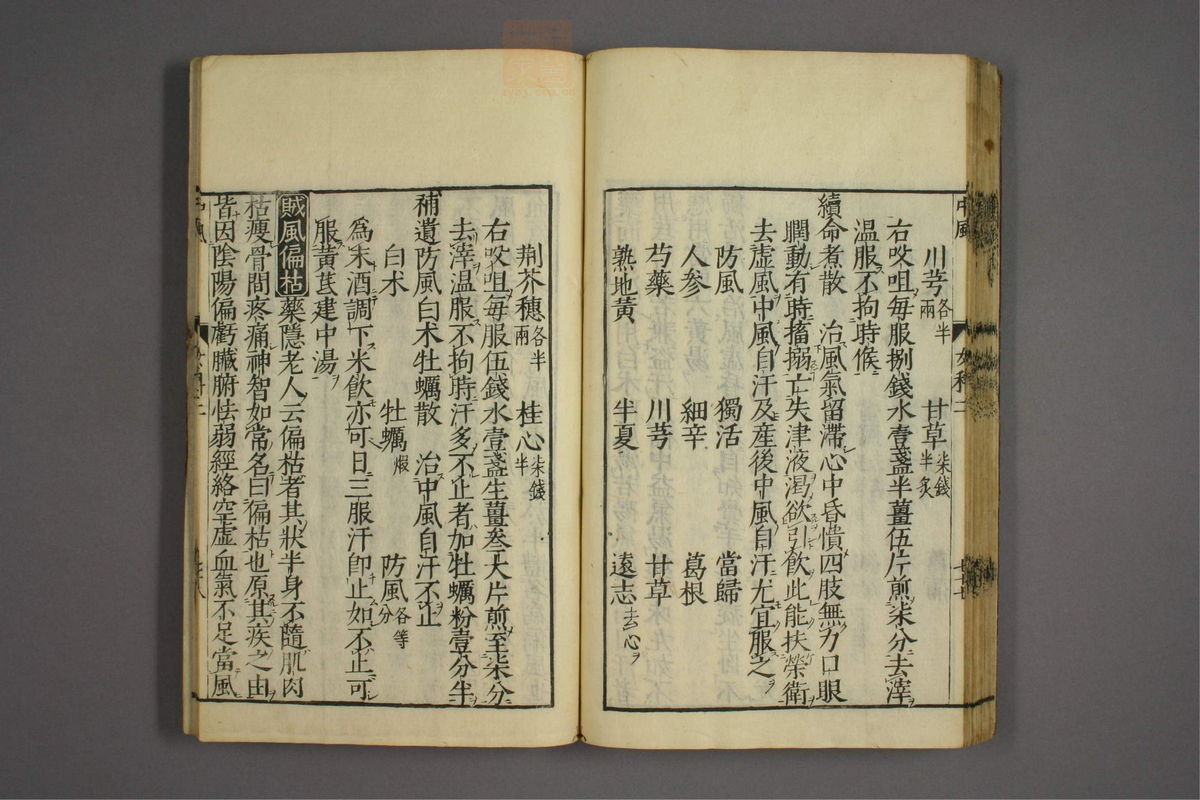 川芎各半兩　甘草柒錢半炙
右㕮咀每服捌錢水壹盞半薑伍片煎柒分去滓
温服不拘時候
續命煮散　治風氣留滯心中昏憒四肢無力口眼
瞤動有時搐搦亡失津液渴欲引飲此能扶榮衛
去虛風中風自汗及產後中風自汗尤宜服之
防風　獨活　當歸
人參　細辛　葛根
芍藥　川芎　甘草
熟地黃　半夏　遠志去心
荆芥穗各半兩　桂心柒錢半
右㕮咀每服伍錢水壹盞生薑叁大片煎至柒分
去滓温服不拘時汗多不止者加牡蠣粉壹分半
補遺防風白术牡蠣散　治中風自汗不止
白术　牡蠣煆　防風各等分
爲末酒調下米飲亦可日三服汗卽止如不止可
服黃芪建中湯
賊風偏枯藥隱老人云偏枯者其狀半身不隨肌肉
枯瘦骨間疼痛神智如常名曰偏枯也原其疾之由
皆因陰陽偏虧臟腑怯弱經絡空虛血氣不足當風
中風